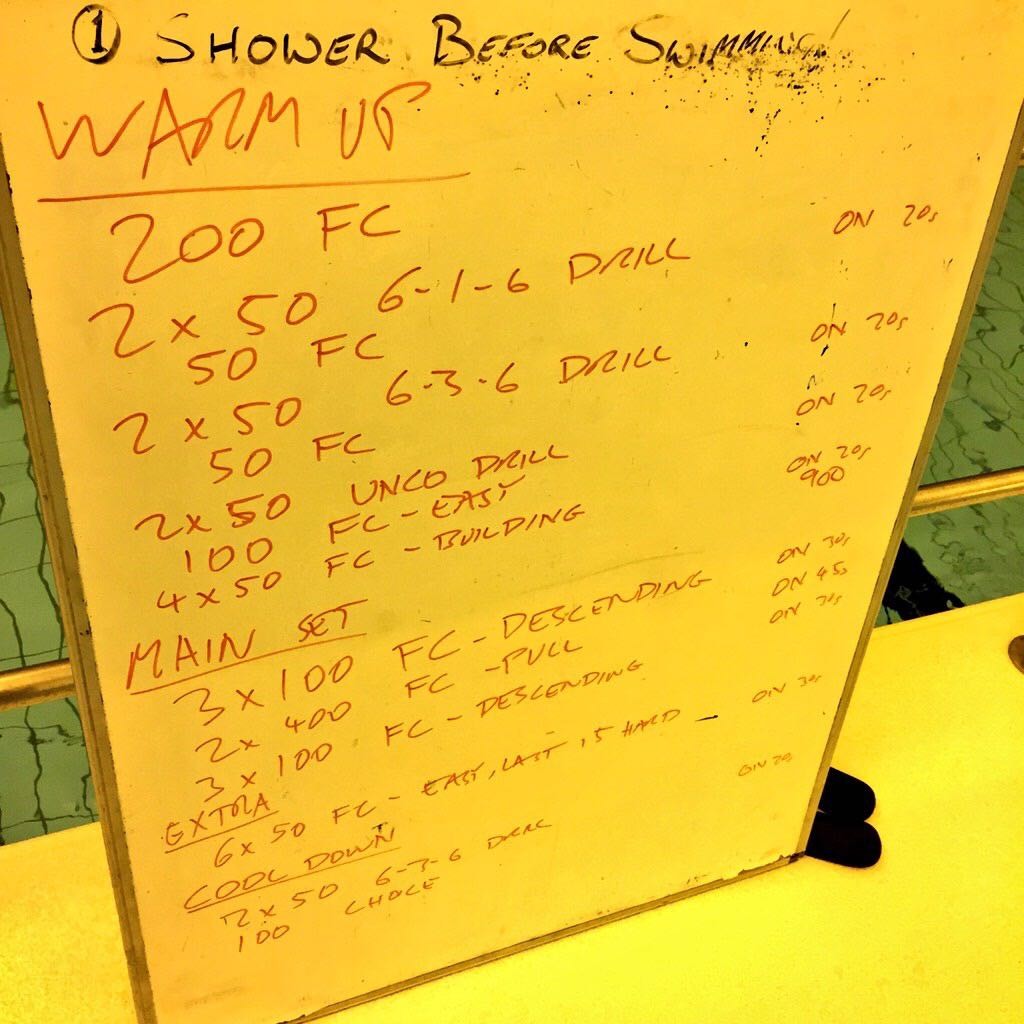 ① SHOWER BEFORE SWIMMING!
WARM UP
200 FC
2 x 50 6-1-6 DRILL ON 20s
50 FC
2 x 50 6-3-6 DRILL ON 20s
50 FC
2 x 50 UNCO DRILL ON 20s
100 FC - EASY
4 x 50 FC - BUILDING ON 20s
900
MAIN SET
3 x 100 FC - DESCENDING ON 30s
2 x 400 FC - PULL ON 45s
3 x 100 FC - DESCENDING ON 30s
EXTRA
6 x 50 FC - EASY, LAST 15 HARD - ON 30s
COOL DOWN
2 x 50 6-3-6 DRILL ON 20s
100 CHOICE